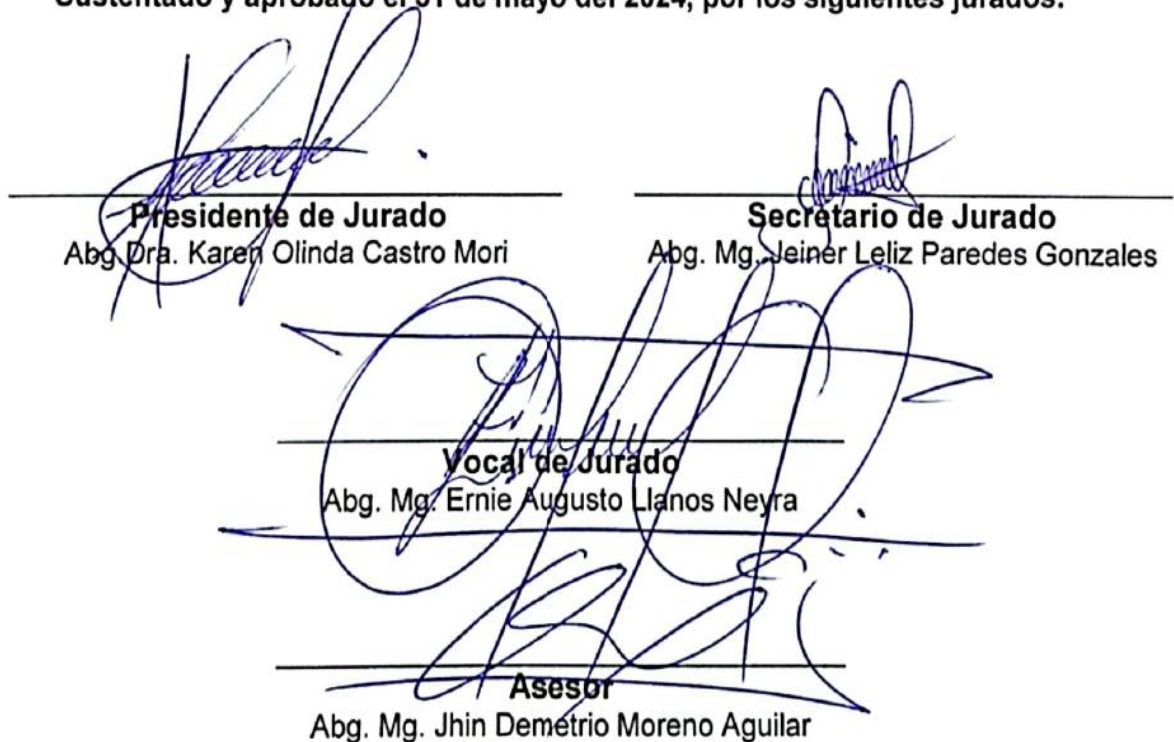 Sustentado y aprobado el 31 de mayo del 2024, por los siguientes jurados:
Presidente de Jurado
Abg Dra. Karen Olinda Castro Mori
Secretario de Jurado
Abg. Mg. Jeiner Leliz Paredes Gonzales
Vocal de Jurado
Abg. Mg. Ernie Augusto Llanos Neyra
Asesor
Abg. Mg. Jhin Demetrio Moreno Aguilar